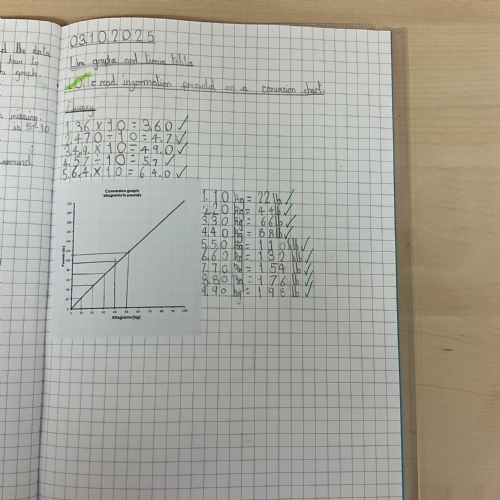 d the data
have to
he graph.
s missing.
in 5-10
03102025
Line graphs and
LO: to read information presented on a conversion chart.
Fluency
1. 36 × 10 = 360 ✓
2. 470 ÷ 10 = 47 ✓
3. 4.9 × 10 = 49.0 ✓
4. 57 ÷ 10 = 5.7 ✓
5. 6.4 × 10 = 64.0 ✓
Conversion graph:
kilograms to pounds
Pounds (lb)
0 10 20 30 40 50 60 70 80 90 100
Kilograms (kg)
1. 10 kg = 22 lb ✓
2. 20 kg = 44 lb ✓
3. 30 kg = 66 lb ✓
4. 40 kg = 88 lb ✓
5. 50 kg = 110 lb ✓
6. 60 kg = 132 lb ✓
7. 70 kg = 154 lb ✓
8. 80 kg = 176 lb ✓
9. 90 kg = 198 lb ✓